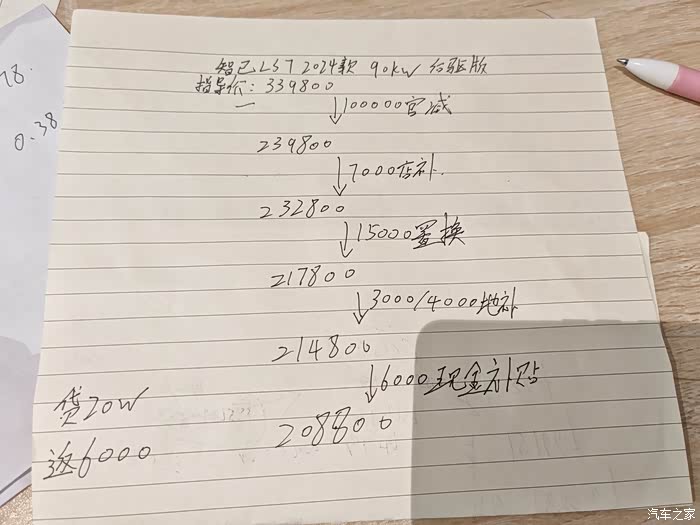 78.
0.38
智己LS7 2024款 90kw 后驱版
指导价: 339800
一
↓100000官减
239800
↓7000店补.
232800
↓15000置换
217800
↓3000/4000地补
214800
↓6000现金补贴
208800
贷20W
返6000
汽车之家